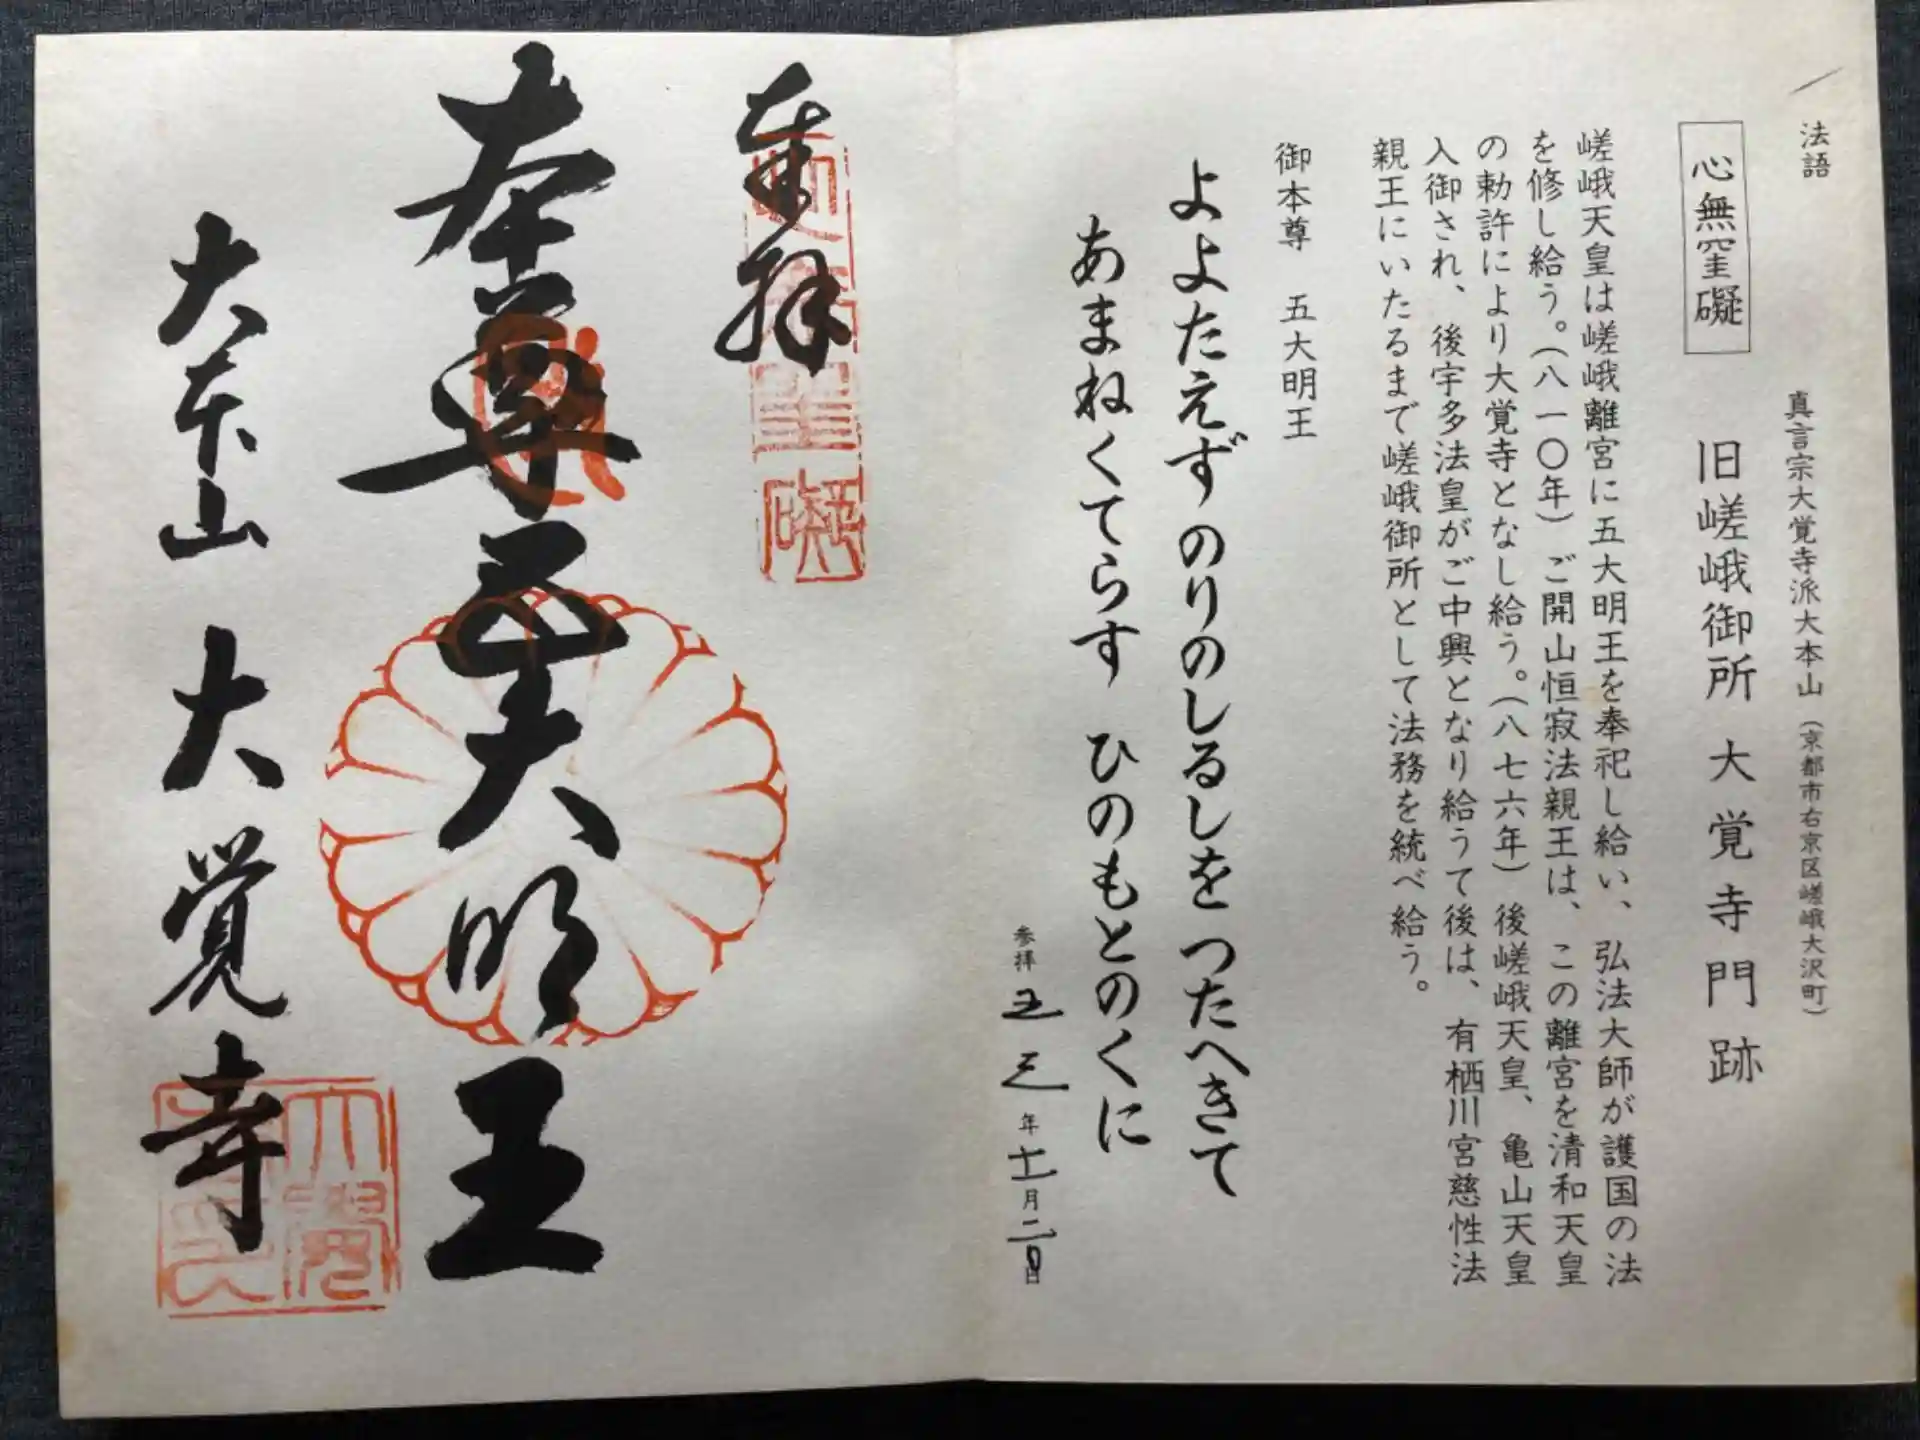 法語
真言宗大覚寺派大本山(京都市右京区嵯峨大沢町)
心無罣礙
旧嵯峨御所 大覚寺門跡
嵯峨天皇は嵯峨離宮に五大明王を奉祀し給い、弘法大師が護国の法
を修し給う。(八一〇年)ご開山恒寂法親王は、この離宮を清和天皇
の勅許により大覚寺となし給う。(八七六年)後嵯峨天皇、亀山天皇
入御され、後宇多法皇がご中興となり給うて後は、有栖川宮慈性法
親王にいたるまで嵯峨御所として法務を統べ給う。
御本尊 五大明王
よよたえず のりのしるしを つたへきて
あまねくてらす ひのもとのくに
参拝 五三年十一月二日
奉拝
心無罣礙
本尊五大明王
大本山 大覚寺